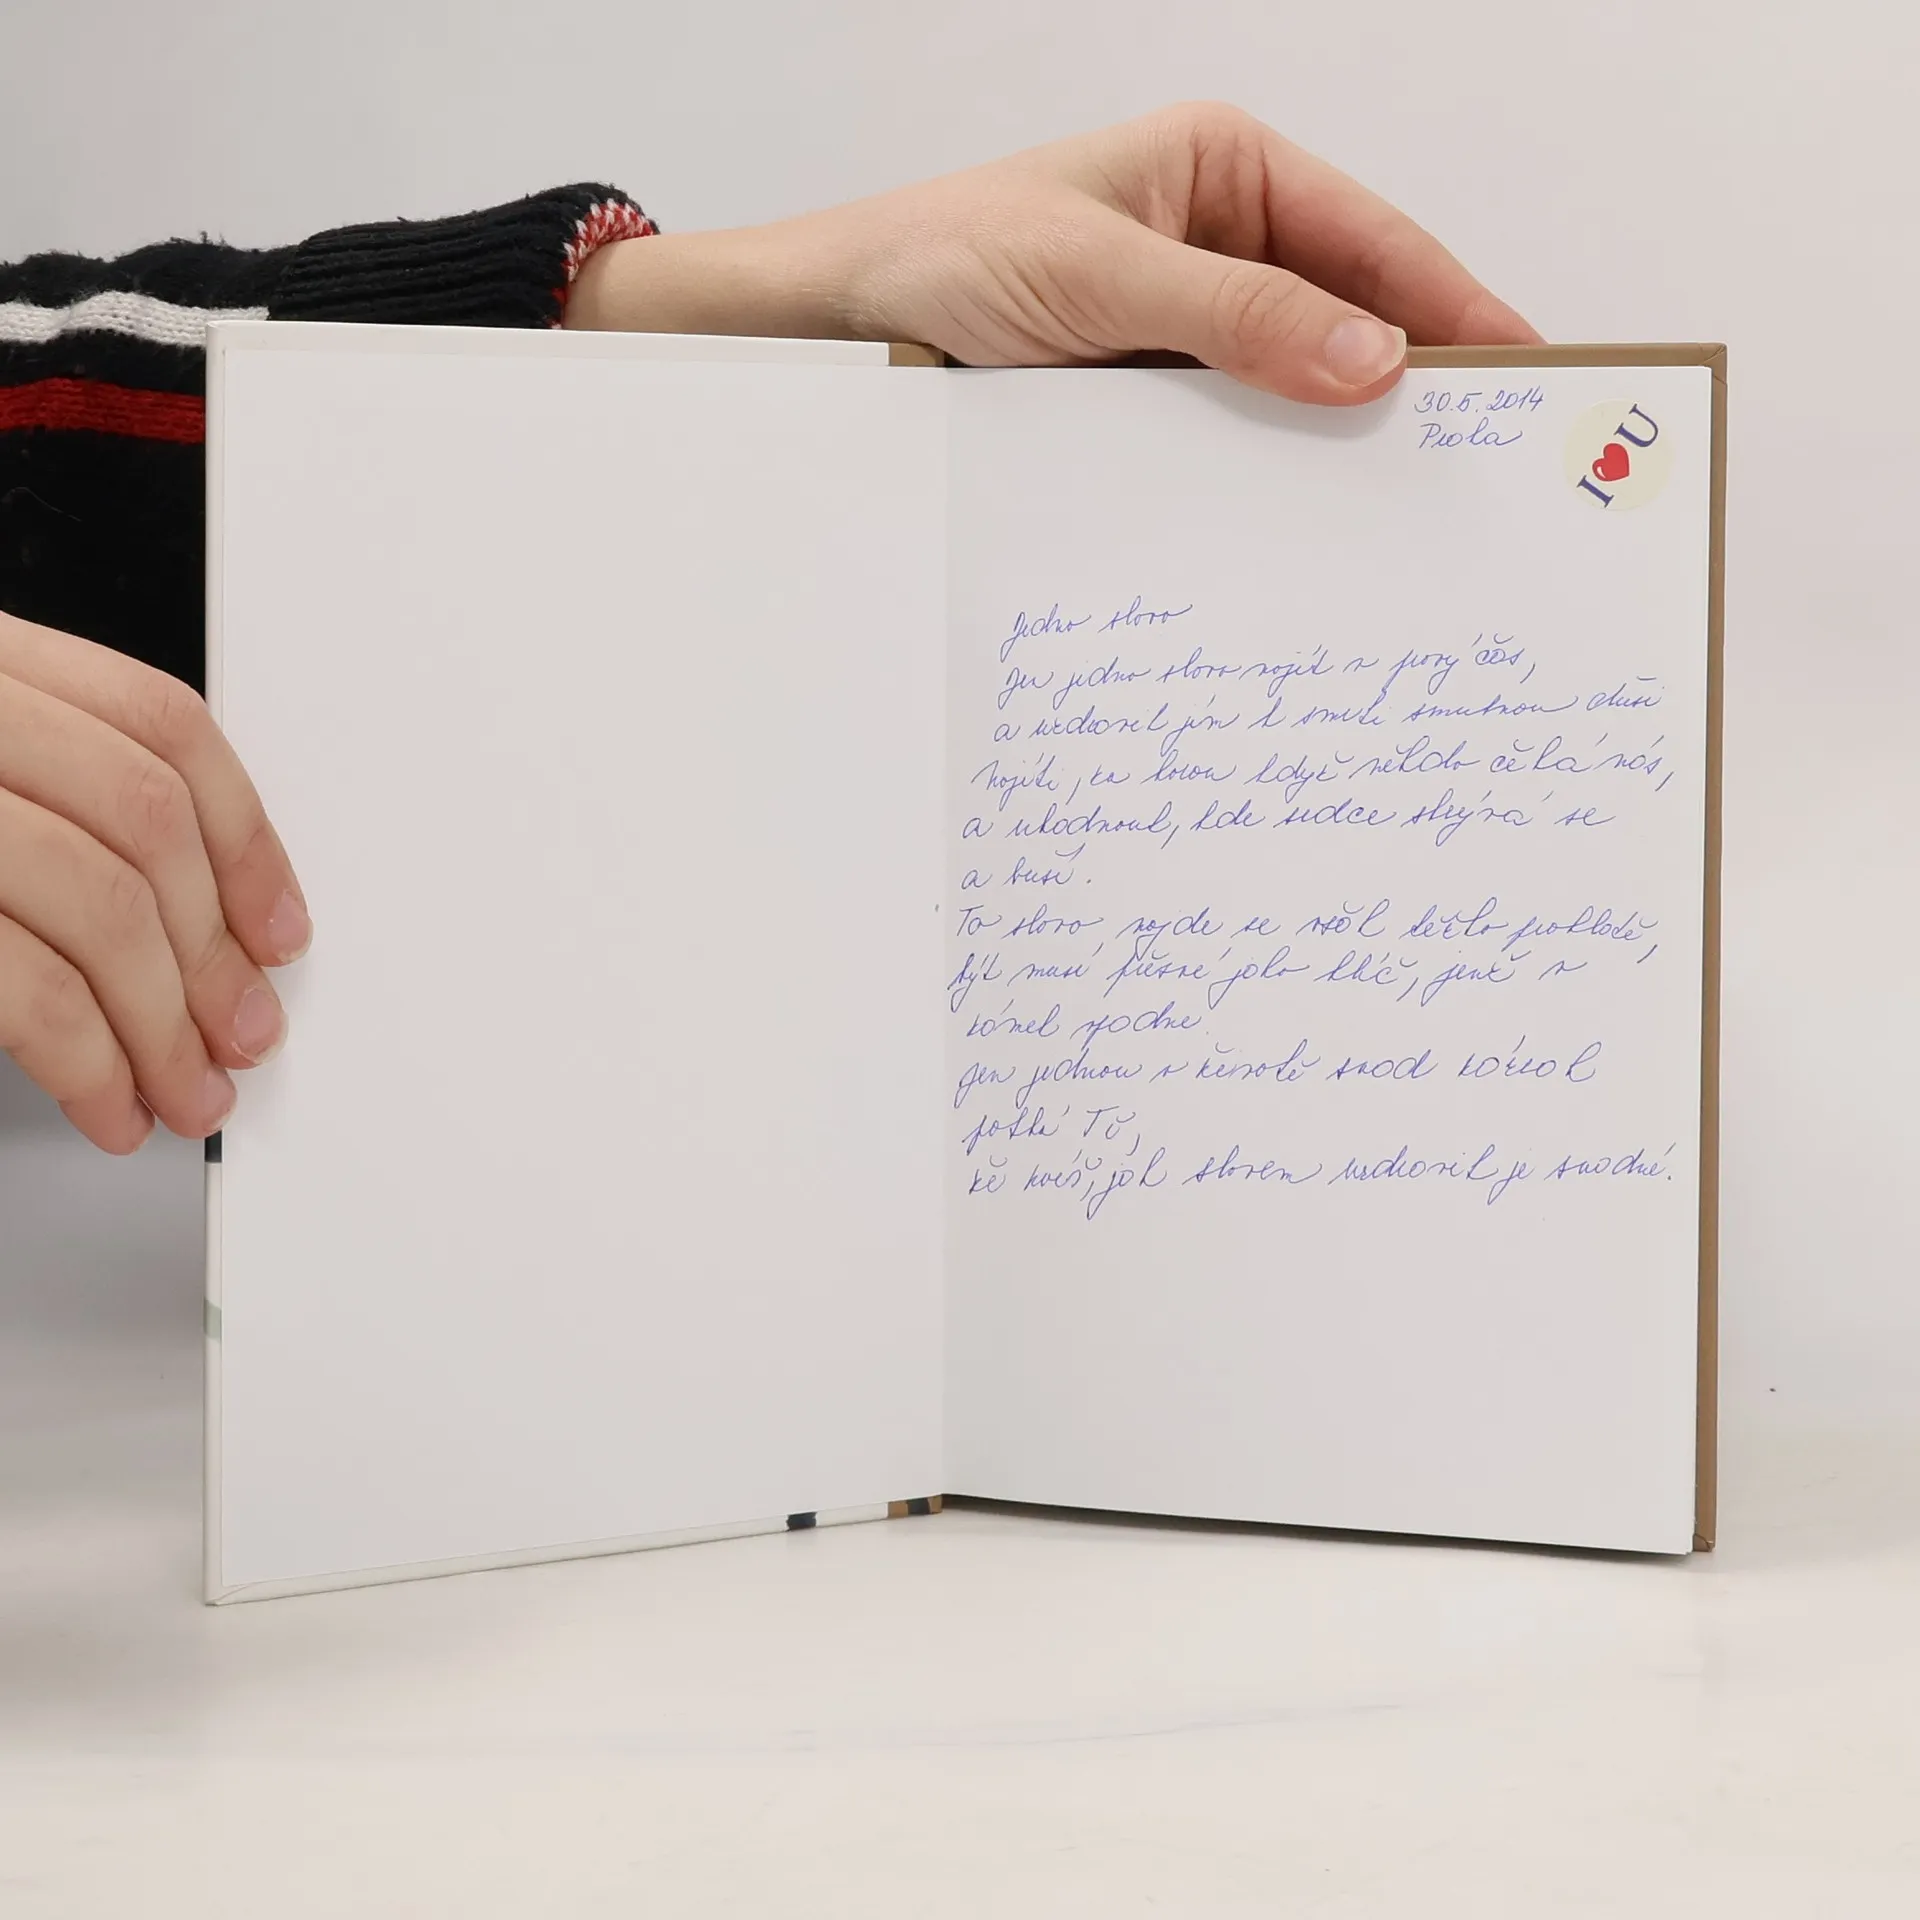 30.5.2014
Praha
I ❤ U
Jedno slovo
Jen jedno slovo najít v pravý čas,
a uzdravit jím k smrti smutnou duši
Najíti, za kolou když někdo čeká nás,
a uhodnout, kde srdce skrývá se
a buší.
To slovo, najde se však těžko pokladě,
být musí přesné jako klíč, jenž v
zámek zpadne.
Jen jednou v životě snad zázrak
potká Tě,
že zvíš, jak slovem uzdravit je snadné.